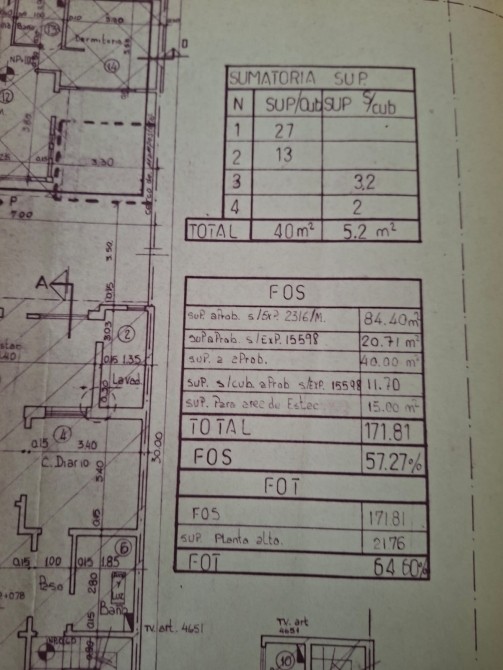 Dormitorio
D
3.30
P
7.00
3.50
A
0.15
3.03
2
0.15 1.35
Lavad.
4
0.15 3.40
C. Diario
5.40
30.00
0.15
6
0.15 1.00 0.15 1.85
2.80
Baño
0.15
TV. art. 4651
SUMATORIA SUP.
N SUP/Cub SUP S/cub
1 27
2 13
3 3.2
4 2
TOTAL 40 m² 5.2 m²
FOS
SUP. aProb. s/ExP. 2316/M. 84.40 m²
SUP. aProb. s/ExP. 15598 20.71 m²
SUP. a aProb. 40.00 m²
SUP. s/cub. aProb s/ExP. 15598 11.70
SUP. Para area de Estac. 15.00 m²
TOTAL 171.81
FOS 57.27%
FOT
FOS 171.81
SUP. Planta alta. 21.76
FOT 64.60%
TV. art
4651
10